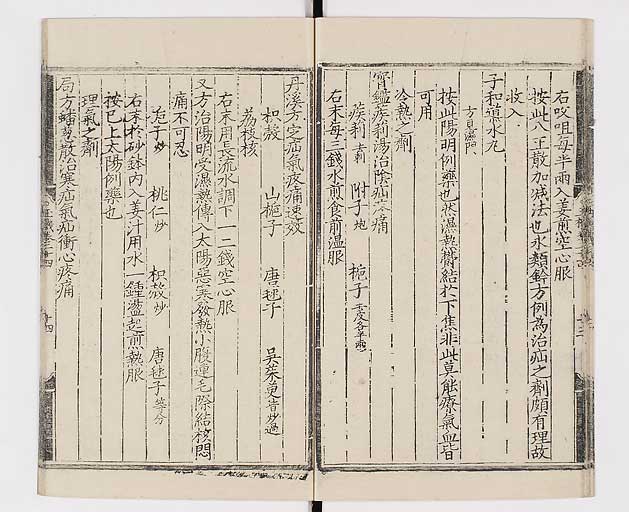 右㕮咀每半兩入姜煎空心服
按此八正散加減法也水類鈐方例為治疝之劑頗有理故
收入
子和導水丸
方見瀉門
按此陽明例藥也然濕熱鬱結於下焦非此莫能療氣血皆
可用
冷熱之劑
寶鑑蒺莉湯治陰疝
蒺莉 去刺 附子 炮 梔子
右末每三錢水煎食前溫服
丹溪方定疝氣疼痛速效
枳殻 山梔子 唐毬子 吳茱萸 皆炒過
荔枝核
右末用長流水調下一二錢空心服
又方治陽明受濕熱傳入太陽惡寒發熱小腹連毛際結核悶
痛不可忍
梔子 炒 桃仁 炒 枳殻 炒 唐毬子 等分
右末於砂鉢內入姜汁用水一鍾盪起煎熱服
按已上太陽例藥也
理氣之劑
局方蟠葱散治寒疝氣疝衝心疼痛